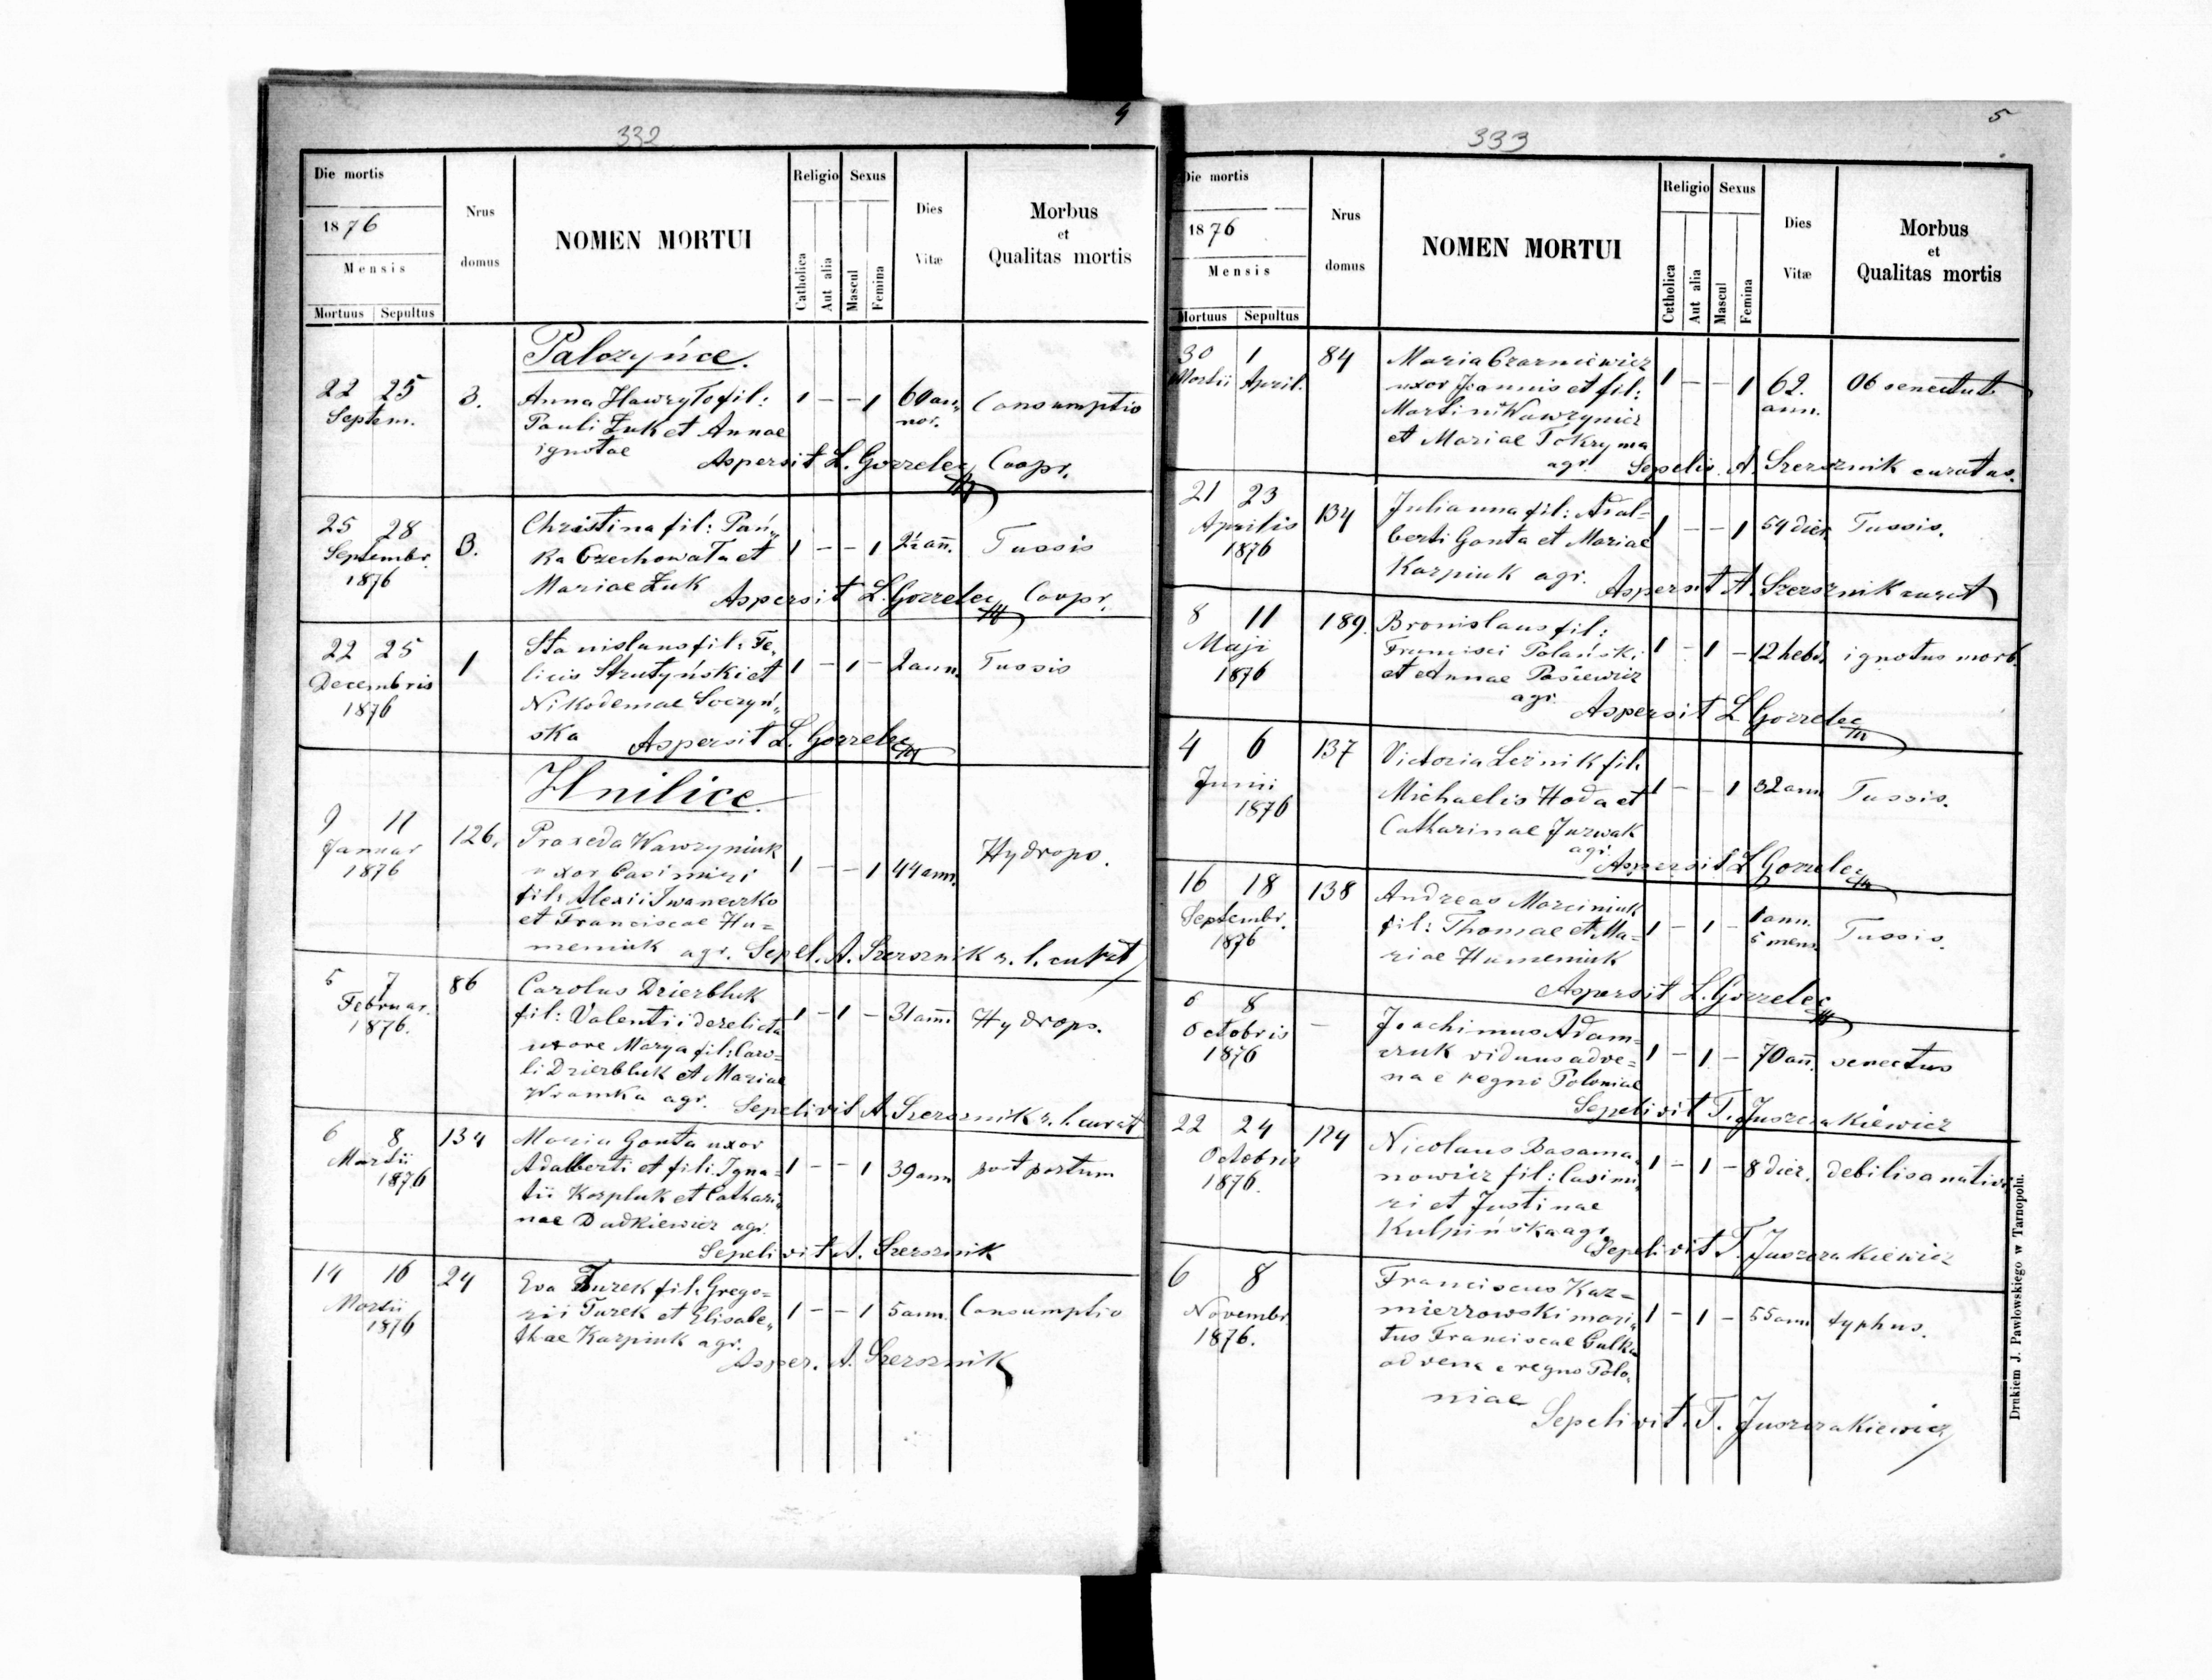 4
332
Die mortis
1876
Mensis
Mortuus Sepultus
Nrus domus
NOMEN MORTUI
Religio
Catholica
Aut alia
Sexus
Mascul
Femina
Dies Vitæ
Morbus
et
Qualitas mortis
Palczyńce.
22 25 3. Anna Hawryło fil: 1 – – 1 60 an„ Consumptio
Septem. Pauli Żuk et Annae nor.
ignotae Aspersit L. Gorzelec Coopr.
25 28 3. Christina fil: Pań„ 1 – – 1 2½ añ. Tussis
Septembr. ka Czechowata et
1876 Mariae Żuk Aspersit L. Gorzelec Coopr.
22 25 1 Stanislaus fil: Fe„ 1 – 1 – 2 ann. Tussis
Decembris licis Strutyński et
1876 Nikodemae Soczyń„
ska Aspersit L. Gorzelec
Hnilice
9 11 126. Praxeda Wawzyniuk 1 – – 1 44 ann. Hydrops.
Januar uxor Casimiri
1876 fil: Alexii Iwaneczko
et Franciscae Hu=
meniuk agr. Sepel. A. Szersznik r. l. curat
5 7 86 Carolus Dzierbluk 1 – 1 – 31 ann. Hydrops.
Februar. fil: Valentii derelicta
1876. uxore Marya fil: Caro=
li Dzierbluk et Mariae
Wramka agr. Sepelivit A. Szersznik r. l. curat
6 8 134 Maria Gonta uxor 1 – – 1 39 ann post partum
Martii Adalberti et fili: Igna=
1876 tii Karpluk et Cathari„
nae Dudkiewicz agr.
Sepelivit A. Szersznik
14 16 24 Eva Turek fil: Grego= 1 – – 1 5 ann. Consumptio
Martii rii Turek et Elisabe„
1876 thae Karpiuk agr.
Asper. A. Szersznik
5
333
Die mortis
1876
Mensis
Mortuus Sepultus
Nrus domus
NOMEN MORTUI
Religio
Catholica
Aut alia
Sexus
Mascul
Femina
Dies Vitæ
Morbus
et
Qualitas mortis
30 1 84 Maria Czarniewicz 1 – – 1 62. Ob senectut.
Martii April. uxor Joannis et fil: ann.
Martini Wawzynicz
et Mariae Tokryma
agr. Sepeliv. A. Szersznik curatus.
21 23 134 Julianna fil: Adal= 1 – – 1 54 dier. Tussis.
Aprilis berti Gonta et Mariae
1876 Karpiuk agr. Aspersit A. Szersznik curat
8 11 189. Bronislaus fil: 1 – 1 – 12 hebd. ignotus morb.
Maji Francisci Polański
1876 et Annae Pasiewicz
agr. Aspersit L Gorzelec
4 6 137 Victoria Leśnik fil: 1 – – 1 32 ann Tussis.
Junii Michaelis Hoda et
1876 Catharinae Jurwak
agr. Aspersit L Gorzelec
16 18 138 Andreas Marciniuk 1 – 1 – 1 ann. Tussis.
Septembr. fil: Thomae et Ma= 5 mens.
1876 riae Humeniuk
Aspersit L. Gorzelec
6 8 – Joachimus Adam= 1 – 1 – 70 añ. senectus
Octobris czuk viduus adve=
1876 na e regno Poloniae
Sepelivit T. Juszczakiewicz
22 24 124 Nicolaus Basama„ 1 – 1 – 8 dier. debilis a nativi
Octobris nowicz fil: Casimi„
1876. ri et Justinae
Kulpińska agr. Sepelivit T. Juszczakiewicz
6 8 Franciscus Kaz= 1 – 1 – 55 ann typhus.
Novembr. mierzowski mari„
1876. tus Franciscae Gulka
advena e regno Polo„
niae
Sepelivit. T. Juszczakiewicz
Drukiem J. Pawłowskiego w Tarnopolu.